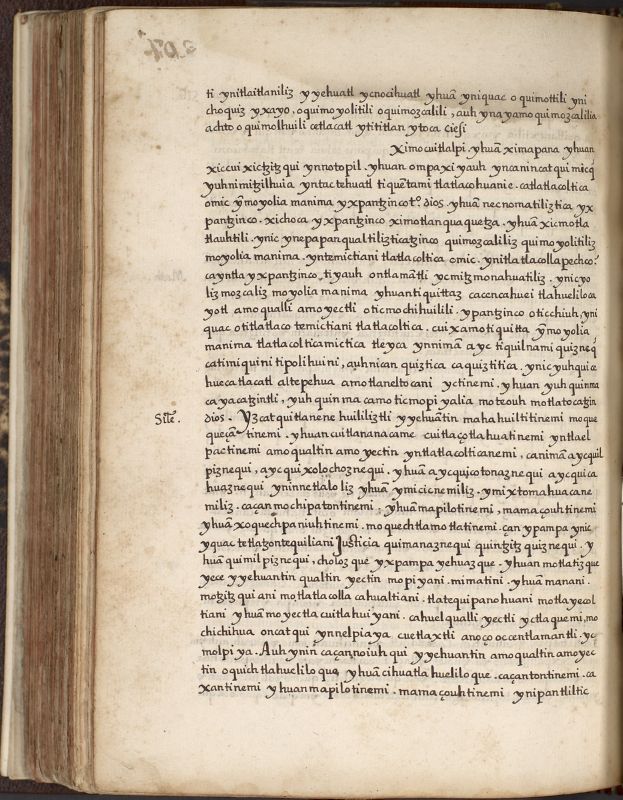 ti ynitlaitlaniliz yyehuatl ycnocihuatl yhuā yniquac oquimottili yni
choquiz yxayo, oquimoyolitili oquimozcalili, auh ynayamo quimozcalilia
achto oquimolhuili cetlacatl ytititlan ytoca Giesi
Ximocuitlalpi yhuā ximapana yhuan
xiccui xictzitzqui ynnotopil. yhuan ompa xiyauh yncanin cat qui micq̄
yuhnimitzilhuia yntac tehuatl tiquētami tlatlacohuanie. catlatlacoltica
omic ȳmoyolia manima yxpantzinco tº. dios. yhuā necnomatiliztica yx
pantzinco. xichoca yxpantzinco ximotlanquaquetza. yhuā xicmotla
tlauhtili. ynic ynepapanqualtiliztìcatzinco quimozcaliliz quimoyolitiliz
moyolia manima. yntemictiani tlatlacoltica omic. ynitlatlacolla pechco?
cayntla yxpantzinco, tiyauh ontlamātli ycmitzmonahuatiliz. ynicyo
liz mozcaliz moyolia manima yhuan tiquittaz cacencahuei tlahueliloca
yotl amo qualli amo yectli oticmochihuilili. yxpantzinco oticchiuh, yni
quac otitlatlaco temictiani tlatlacoltica. cuix amo tiquitta ȳmoyolia
manima tlatlacolticamictica tleyca ynnimā ayc tiquilnamiquizneqū
catimiquini tipolihuini, auhnican quiztica caquiztitica. ynic yuhquice
huecatlacatl altepehua amotlaneltocani yctinemi. yhuan yuh quinma
cayacatzintli, yuh quinma camo ticmopiyalia moteouh motlatocatzin
Site. dios. Yzcatqui tlanenehuililiztli yyehuantin mahahuiltitinemi moque
queçatinemi. yhuan cuitlananacame cuitlaçotlahuatinemi yntlael
pactinemi amo qualtin amo yectin yntlatlacolticanemi, canimā aycquil
piznequi, aycqui xolochoznequi. yhuā aycquicotonaznequi aycquica
huaznequi yninnetlaloliz yhuā ymicicnemiliz. ymixtomahuacane
miliz. caçan mochipa tontinemi, yhuā mapilotinemi, mamaçouhtinemi
yhuā xoquechpaniuhtinemi. moquechtlamotlatinemi. çan ypampa ynic
yquac tetlatzontequiliani Justicia quimanaznequi quintzitzquiznequi. y
huā quimilpiznequi, cholozque yxpampa yehuazque. yhuan motlatizque
yece yyehuantin qualtin yectin mopiyani. mimatini. yhuā manani.
motzitzquiani motlatlacollacahualtiani. tlatequipanohuani motlayecol
tiani yhuā moyectlacuitlahuiyani. cahuel qualli yectli yctlaquemi, mo
chichihua oncatqui ynnelpiaya cuetlaxtli anoço occentlamantli. yc
molpiya. Auh ynin caçannoiuhqui yyehuantin amo qualtin amo yec
tin oquichtlahueliloque, yhuā cihuatlahueliloque. caçantontinemi. ca
xantinemi yhuan mapilotinemi. mamaçouhtinemi ynipantliltic